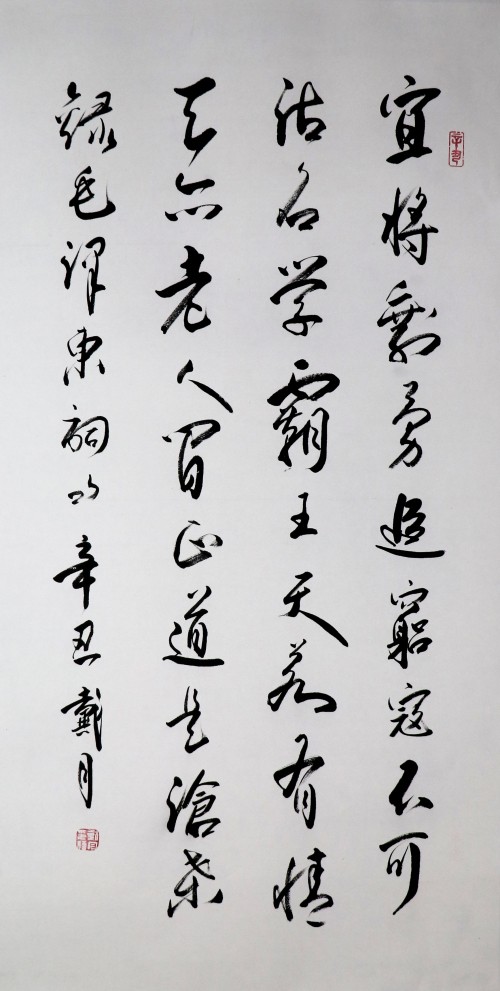 宜将剩勇追窮寇不可
沽名学霸王天若有情
天亦老人间正道是滄桑
録毛泽东詞句辛丑戴月
辛丑